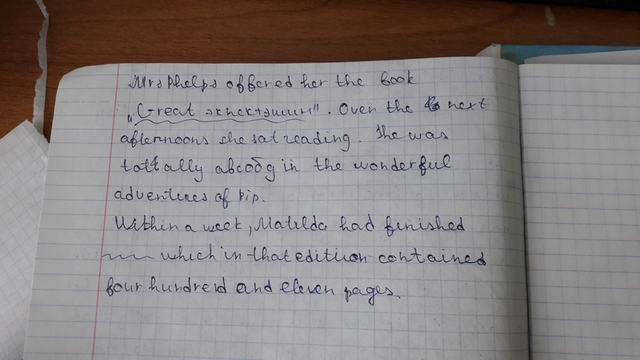 Mrs Phelps offered her the book
"Great экпектэшин". Over the next
afternoons she sat reading. She was
tottally abcoбg in the wonderful
adventures of Pip.
Within a week, Matilda had finished
which in that edition contained
four hundred and eleven pages.